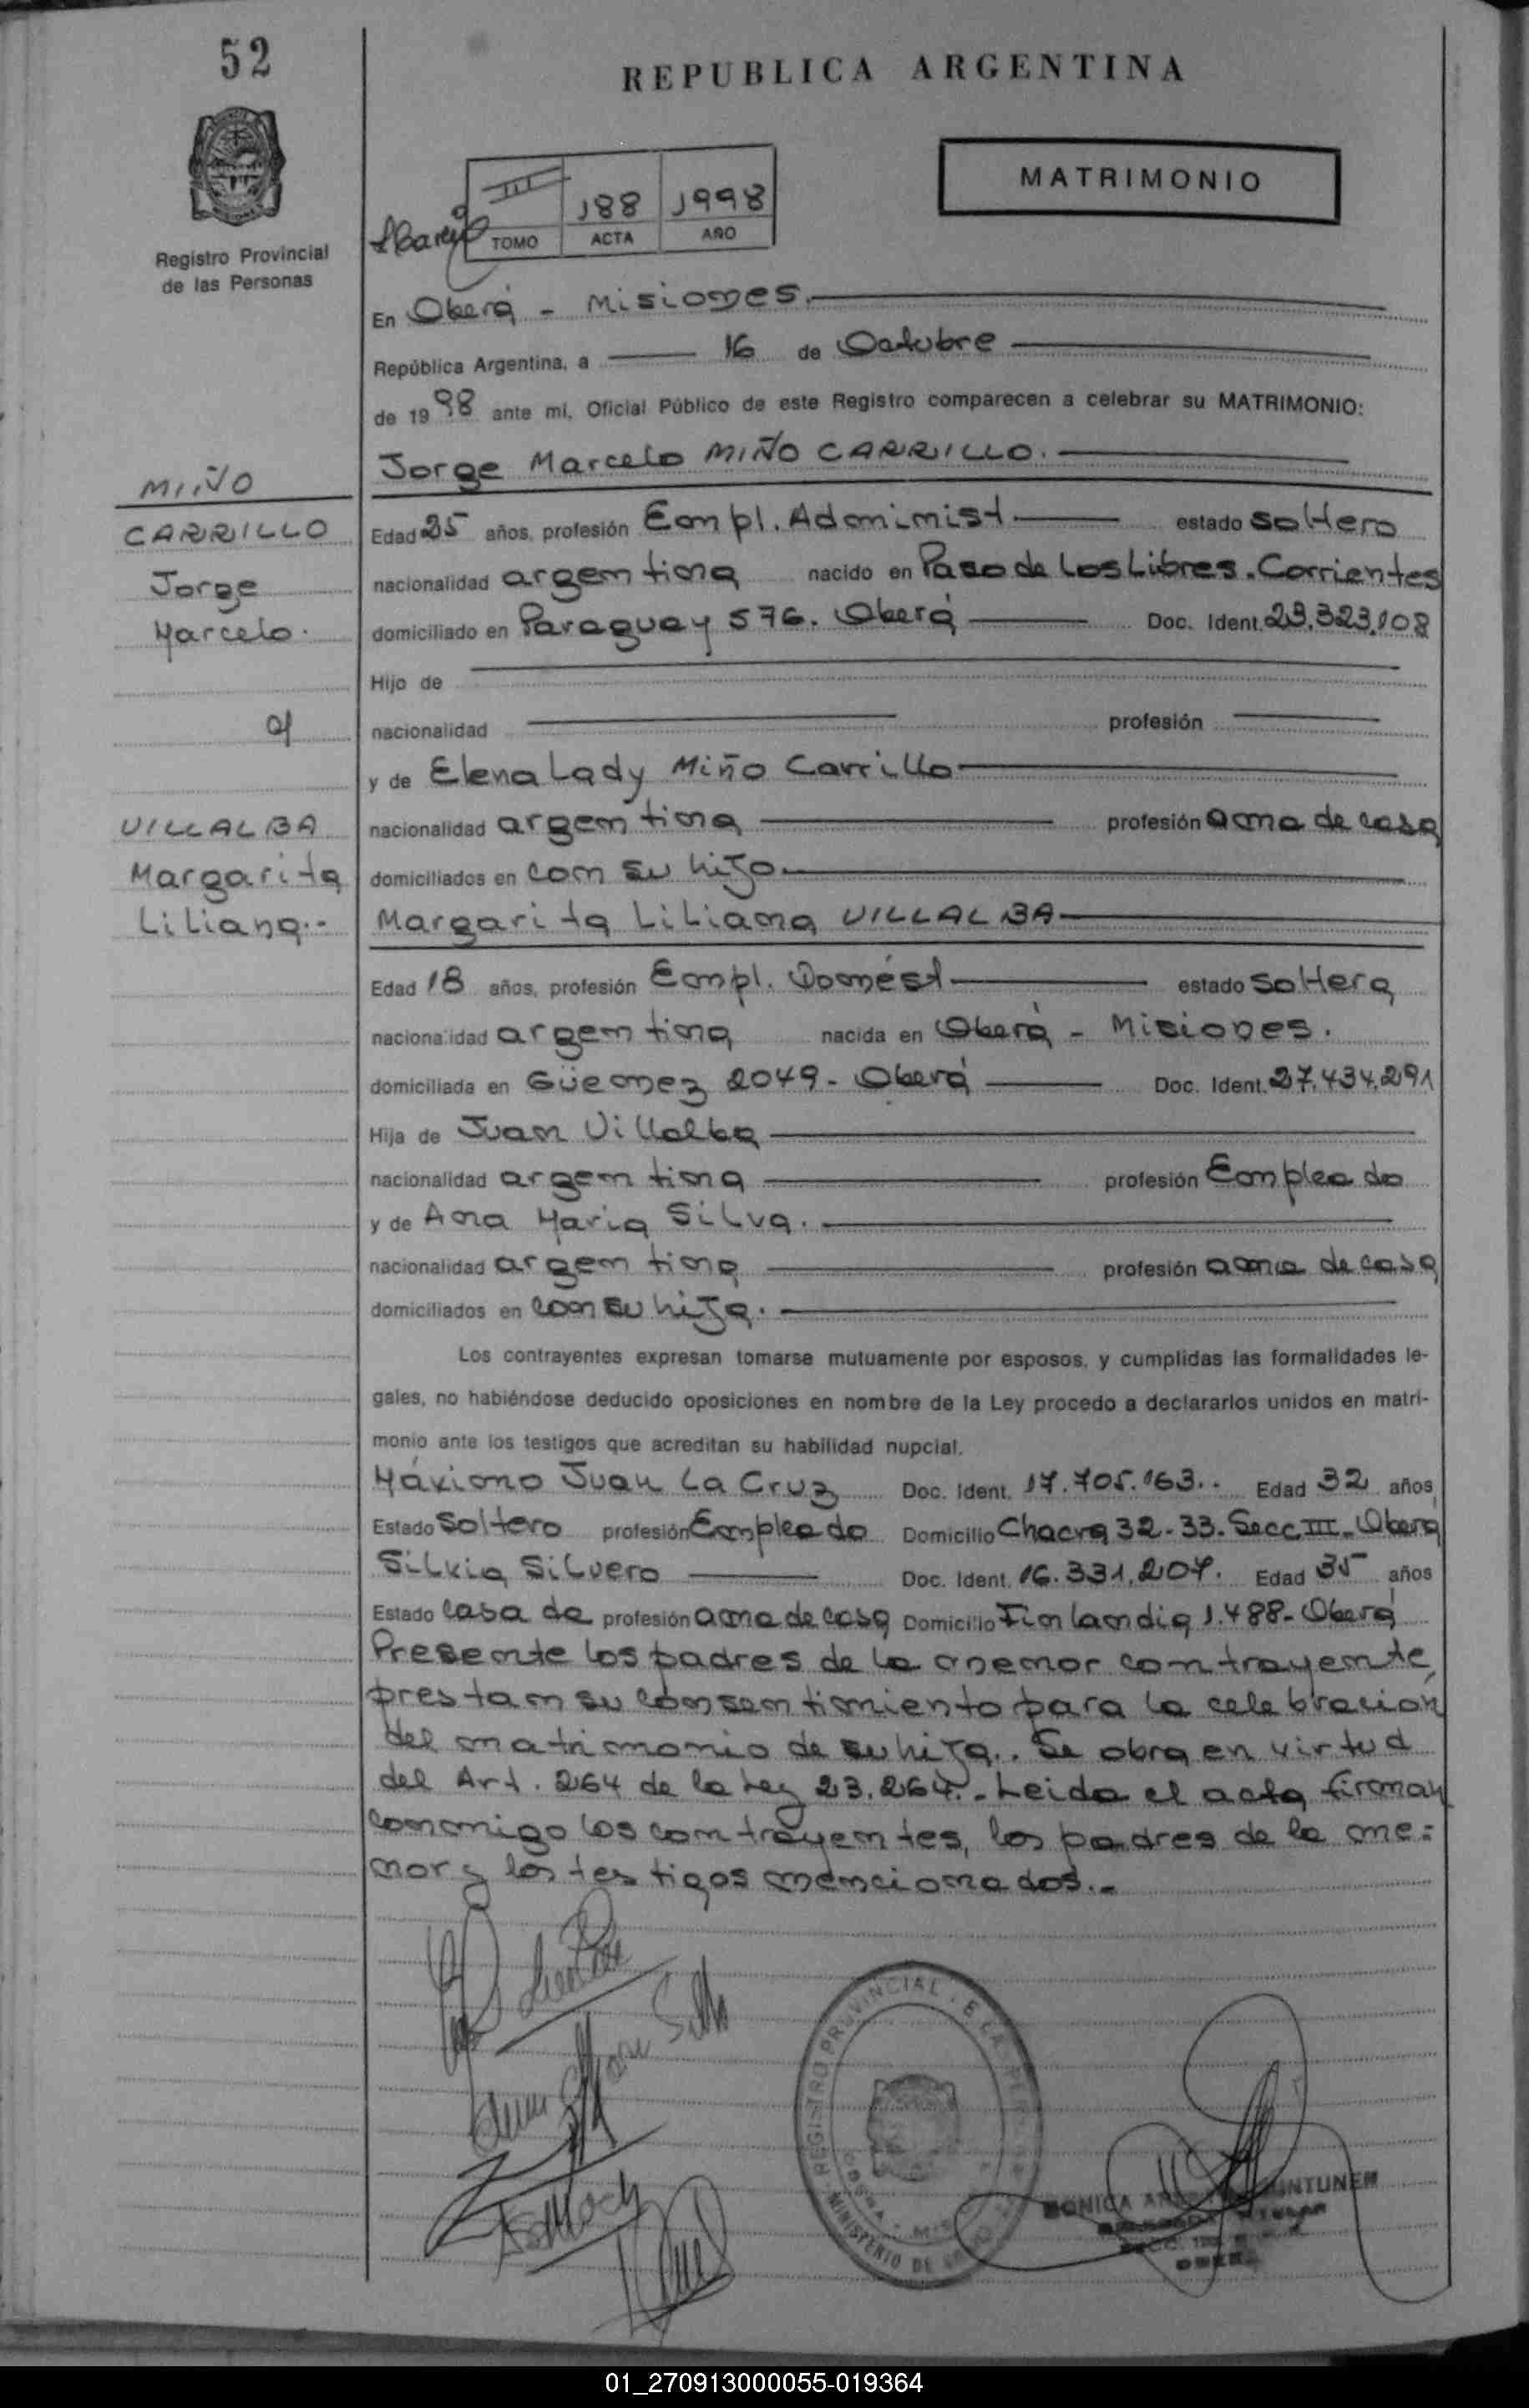 52
REPUBLICA ARGENTINA
MATRIMONIO
III 188 1998
TOMO ACTA AÑO
Registro Provincial
de las Personas
En Oberá - Misiones.
República Argentina, a 16 de Octubre
de 1998 ante mí, Oficial Público de este Registro comparecen a celebrar su MATRIMONIO:
Jorge Marcelo MIÑO CARRILLO.
MIÑO
CARRILLO
Jorge
Marcelo.
Edad 25 años, profesión Empl. Administ estado soltero
nacionalidad argentina nacido en Paso de Los Libres. Corrientes
domiciliado en Paraguay 576. Oberá Doc. Ident. 23.323.108
Hijo de
nacionalidad profesión
y de Elena Lady Miño Carrillo
VILLALBA
Margarita
Liliana.-
nacionalidad argentina profesión ama de casa
domiciliados en con su hijo.
Margarita Liliana VILLALBA
Edad 18 años, profesión Empl. Domést estado soltera
nacionalidad argentina nacida en Oberá - Misiones.
domiciliada en Güemez 2049- Oberá Doc. Ident. 27.434.291
Hija de Juan Villalba
nacionalidad argentina profesión Empleado
y de Ana Maria Silva.
nacionalidad argentina profesión ama de casa
domiciliados en con su hija.
Los contrayentes expresan tomarse mutuamente por esposos, y cumplidas las formalidades le-
gales, no habiéndose deducido oposiciones en nombre de la Ley procedo a declararlos unidos en matri-
monio ante los testigos que acreditan su habilidad nupcial.
Máximo Juan La Cruz Doc. Ident. 17.705.163.. Edad 32 años
Estado Soltero profesión Empleado Domicilio Chacra 32-33. Secc. III- Obera
Silvia Silvero Doc. Ident. 16.331.207. Edad 35 años
Estado casa da profesión ama de casa Domicilio Finlandia 1.488- Oberá
Presente los padres de la menor contrayente,
prestan su consentimiento para la celebración
del matrimonio de su hija.. Se obra en virtud
del Art. 264 de la Ley 23.264.- Leida el acta firman
conmigo los contrayentes, los padres de la me=
nor y los testigos mencionados.-
REGISTRO PROVINCIAL
MINISTERIO DE
01_270913000055-019364